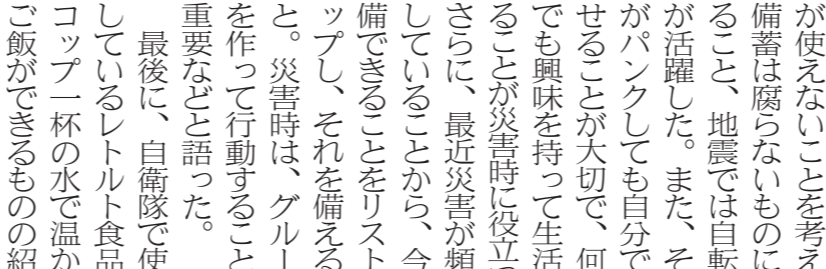 が使えないことを考え
備蓄は腐らないものに
ること、地震では自転
が活躍した。また、そ
がパンクしても自分で
せることが大切で、何
でも興味を持って生活
ることが災害時に役立つ
さらに、最近災害が頻
していることから、今
備できることをリスト
ップし、それを備える
と。災害時は、グルー
を作って行動すること
重要などと語った。
最後に、自衛隊で使
しているレトルト食品
コップ一杯の水で温か
ご飯ができるものの紹